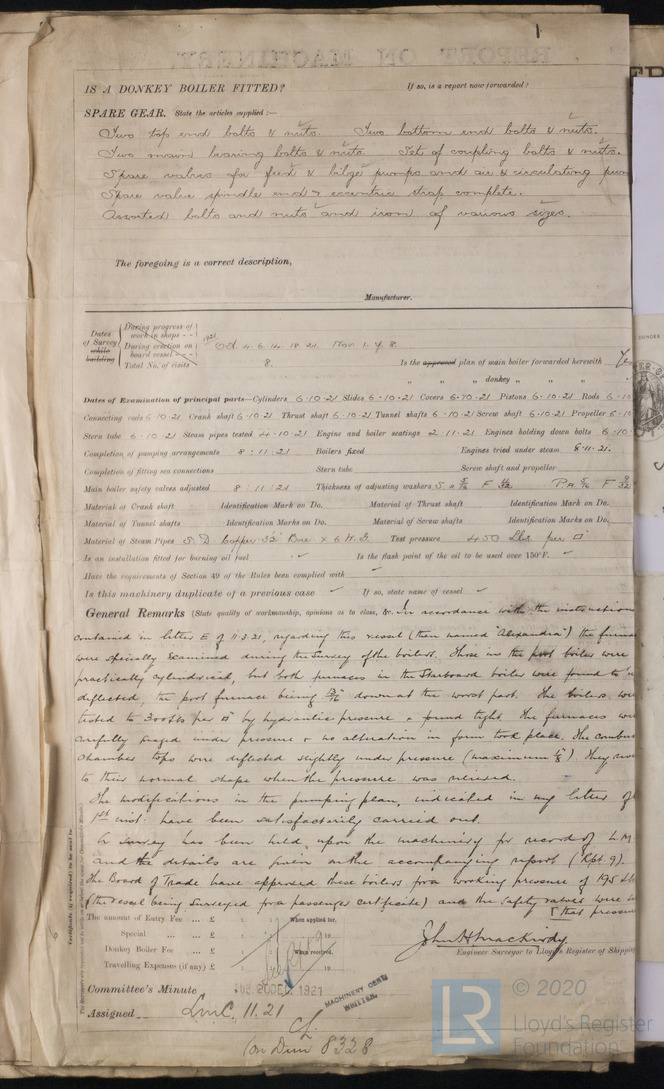 1
REPORT ON MACHINERY
IS A DONKEY BOILER FITTED? If so, is a report now forwarded?
SPARE GEAR. State the articles supplied:—
Two top end bolts & nuts. Two bottom end bolts & nuts.
Two main bearing bolts & nuts Set of coupling bolts & nuts.
Spare valves for feed & bilge pumps and air & circulating pum
Spare valve spindle and eccentric strap complete.
Assorted bolts and nuts and iron of various sizes.
The foregoing is a correct description,
Manufacturer.
Dates of Survey while building
During progress of work in shops - -
During erection on board vessel - - -
Total No. of visits
1921 Oct. 4. 6. 14. 18. 21. Nov 1. 4. 8.
8. Is the approved plan of main boiler forwarded herewith Ye
" " " donkey " " "
Dates of Examination of principal parts—Cylinders 6.10.21 Slides 6.10.21 Covers 6.10.21 Pistons 6.10.21 Rods 6.10
Connecting rods 6.10.21 Crank shaft 6.10.21 Thrust shaft 6.10.21 Tunnel shafts 6.10.21 Screw shaft 6.10.21 Propeller 6.10
Stern tube 6.10.21 Steam pipes tested 4.10.21 Engine and boiler seatings 2.11.21 Engines holding down bolts 6.10
Completion of pumping arrangements 8:11:21 Boilers fixed Engines tried under steam 8.11.21.
Completion of fitting sea connections Stern tube Screw shaft and propeller
Main boiler safety valves adjusted 8:11:21 Thickness of adjusting washers
Material of Crank shaft Identification Mark on Do. Material of Thrust shaft Identification Mark on Do.
Material of Tunnel shafts Identification Marks on Do. Material of Screw shafts Identification Marks on Do.
Material of Steam Pipes S.D. Copper Bore x 6 W.G. Test pressure 450 Lbs. per □"
Is an installation fitted for burning oil fuel ✓ Is the flash point of the oil to be used over 150°F. ✓
Have the requirements of Section 49 of the Rules been complied with ✓
Is this machinery duplicate of a previous case ✓ If so, state name of vessel ✓
General Remarks (State quality of workmanship, opinions as to class, &c. In accordance with the instructions
contained in letter E of 11.3.21, regarding this vessel (then named "Alexandria") the furnac
were specially examined during the survey of the boilers. Those in the port boiler were
practically cylindrical, but both furnaces in the Starboard boiler were found to be
deflected, the port furnace being down at the worst part. The boilers were
tested to 300 lbs per □" by hydraulic pressure & found tight. The furnaces were
carefully gauged under pressure & no alteration in form took place. The combus
chamber tops were deflected slightly under pressure (maximum 1/8"). They
to their normal shape when the pressure was relieved.
The modifications in the pumping plan, indicated in my letter of
1st inst: have been satisfactorily carried out.
A survey has been held upon the machinery for record of L.M
and the details are given on the accompanying report (Rpt. 9).
The Board of Trade have approved these boilers for a working pressure of 195 lb
(the vessel being surveyed for a passenger certificate) and the safety valves were
that pressure
The amount of Entry Fee ... £ : : When applied for,
Special ... ... £ : : 19
Donkey Boiler Fee ... £ : : When received,
Travelling Expenses (if any) £ : : 19
John H. Mackirdy
Engineer Surveyor to Lloyd's Register of Shipping
Committee's Minute TUE. 20 DEC. 1921
MACHINERY CERT. WRITTEN.
Assigned LMC. 11.21
on Dun 8328
Certificate (if required) to be sent to
LR
© 2020
Lloyd's Register
Foundation